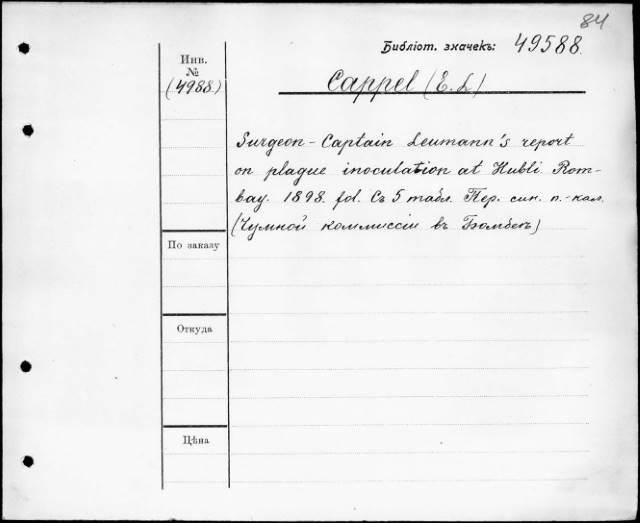 84
Библіот. значекъ: 49588.
Инв.
№
(4988.)
Cappel (E. L)
Surgeon-Captain Leumann's report
on plague inoculation at Hubli. Bom-
bay. 1898. fol. Съ 5 табл. Пер. син. п.-кал.
(Чумной коммиссіи въ Бомбеѣ)
По заказу
Откуда
Цѣна